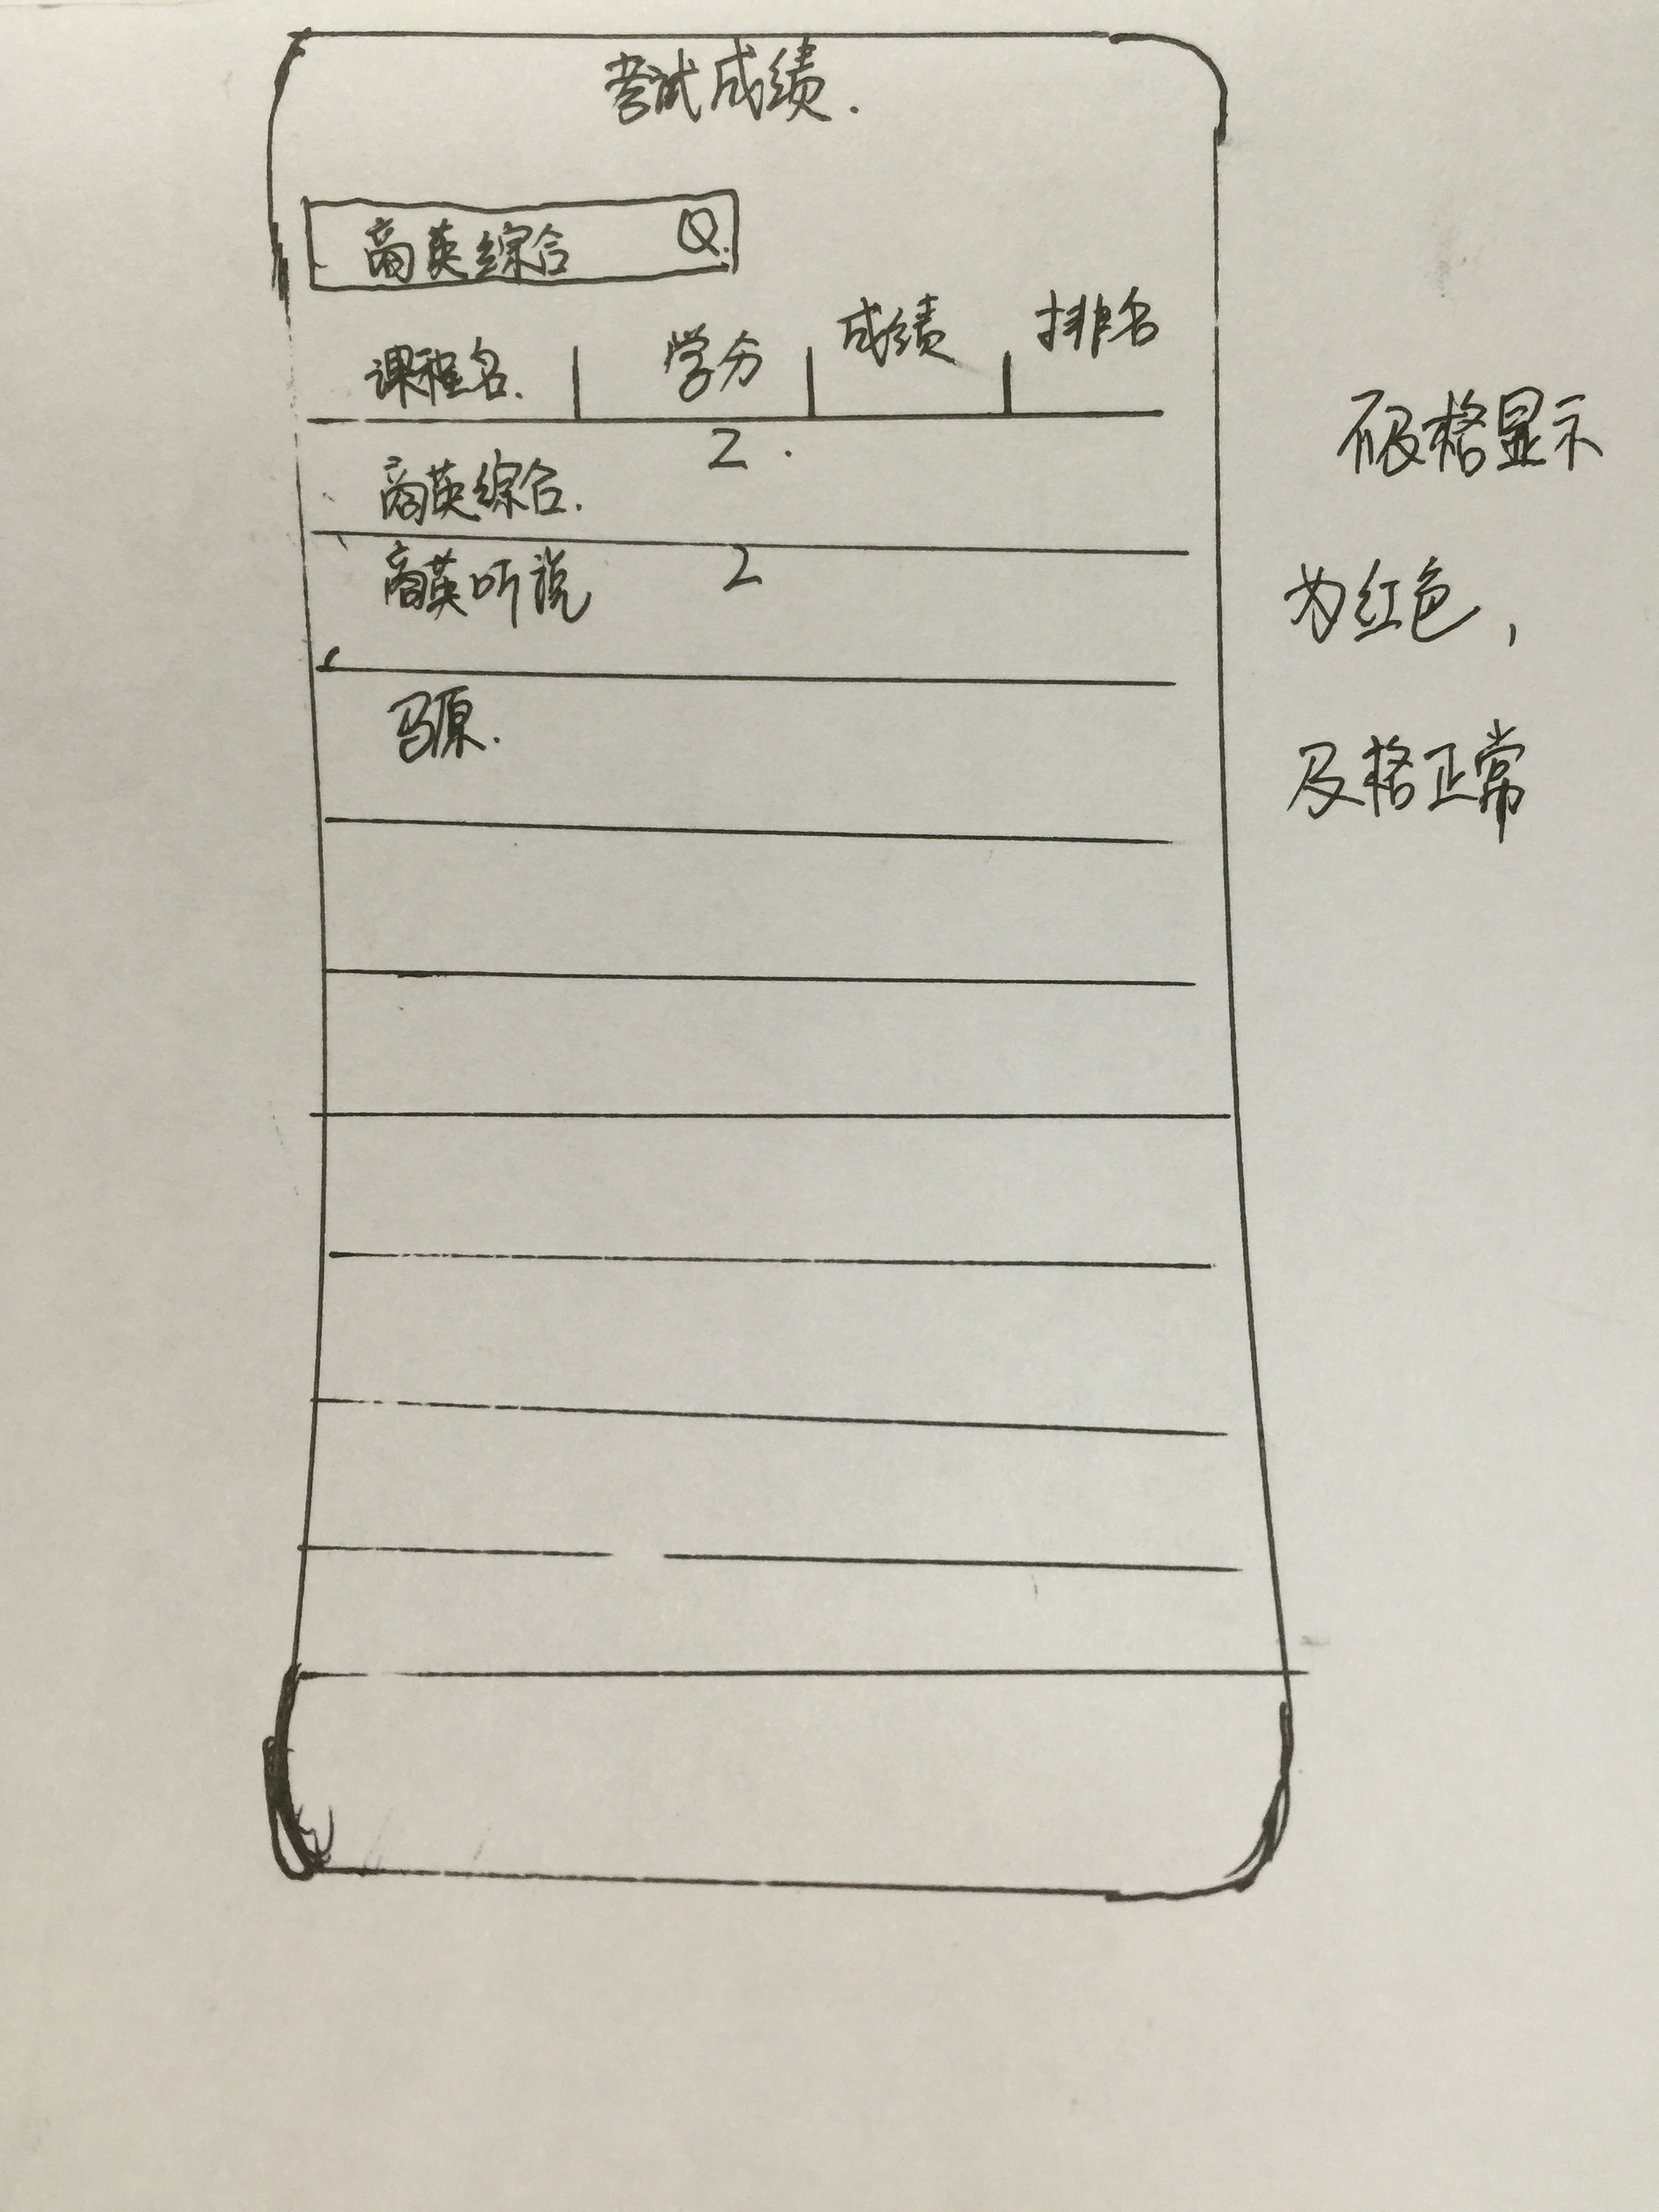 考试成绩.
商英综合
课程名. 学分 成绩 排名
商英综合. 2.
商英听说 2
马原.
不及格显示
为红色,
及格正常